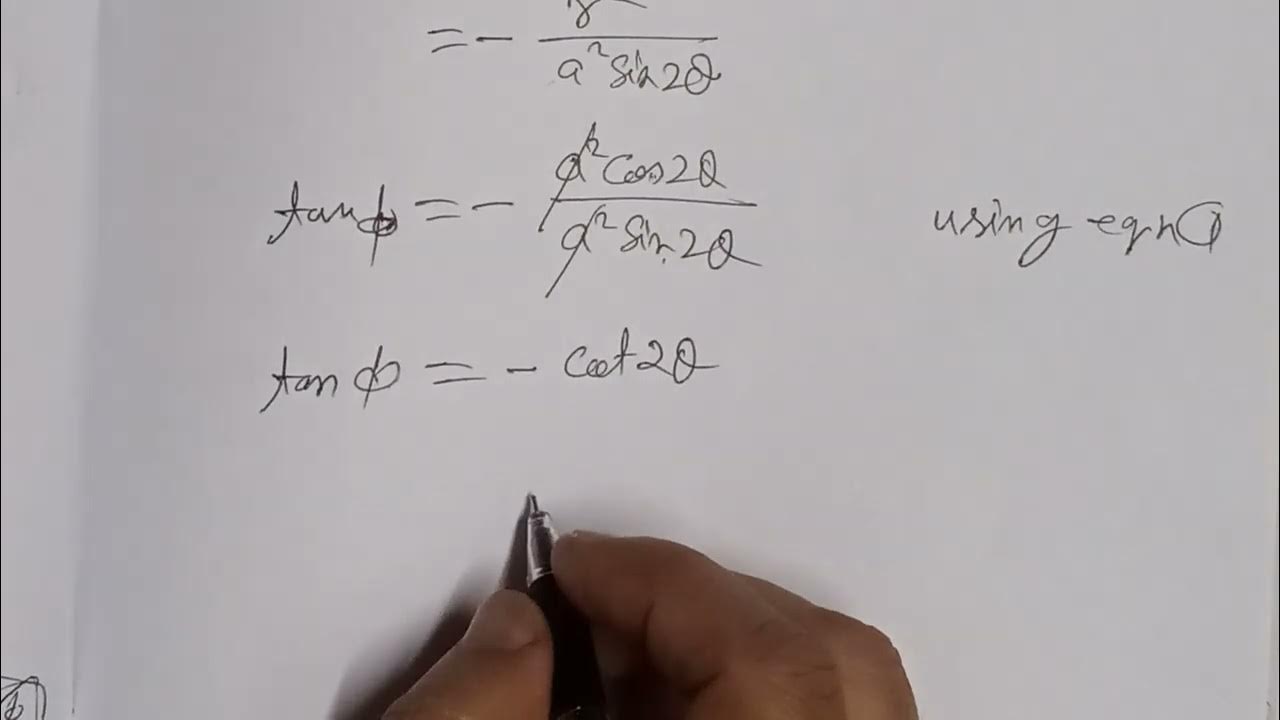 = - r² / a² sin 2θ
tan ϕ = - a² cos 2θ / a² sin 2θ using eqn ①
tan ϕ = - cot 2θ